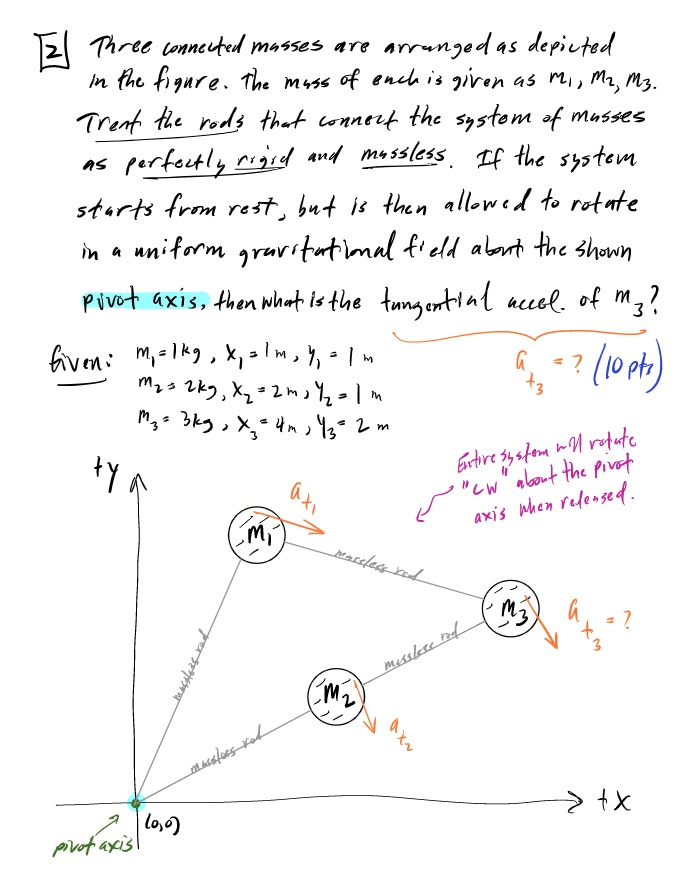 [2] Three connected masses are arranged as depicted
in the figure. The mass of each is given as m₁, m₂, m₃.
Treat the rods that connect the system of masses
as perfectly rigid and massless. If the system
starts from rest, but is then allowed to rotate
in a uniform gravitational field about the shown
pivot axis, then what is the tangential accel. of m₃?
Given: m₁=1kg, x₁=1m, y₁=1m
a_t₃ = ? (10 pts)
m₂=2kg, x₂=2m, y₂=1m
m₃=3kg, x₃=4m, y₃=2m
Entire system will rotate
"CW" about the pivot
axis when released.
+y
a_t₁
m₁
massless rod
m₃
a_t₃ = ?
massless rod
massless rod
m₂
a_t₂
massless rod
+x
(0,0)
pivot axis